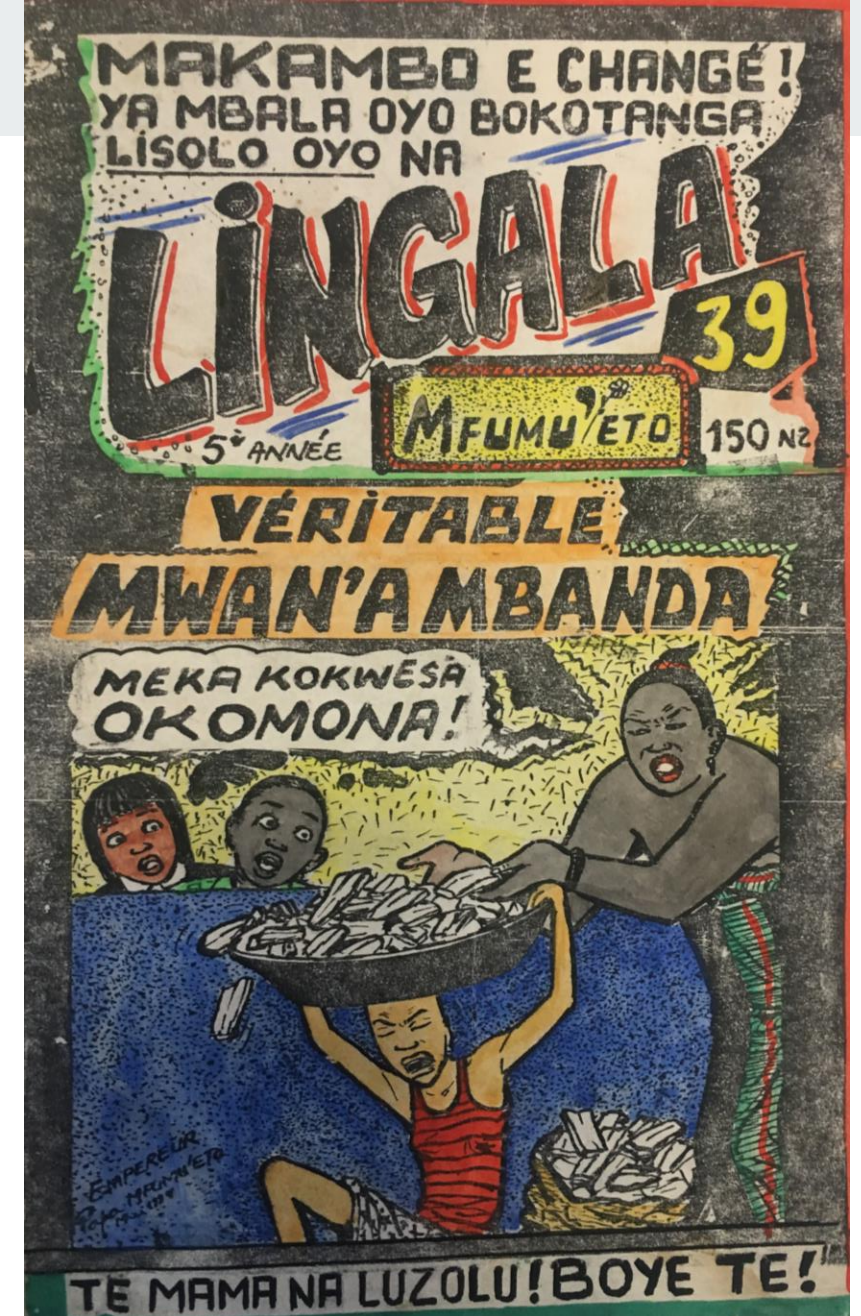 MAKAMBO E CHANGÉ!
YA MBALA OYO BOKOTANGA
LISOLO OYO NA
LINGALA
39
5è ANNÉE
MFUMU'ETO
150 NZ
VÉRITABLE
MWAN'A MBANDA
MEKA KOKWESA
OKOMONA!
EMPEREUR
MFUMU'ETO
TE MAMA NA LUZOLU! BOYE TE!